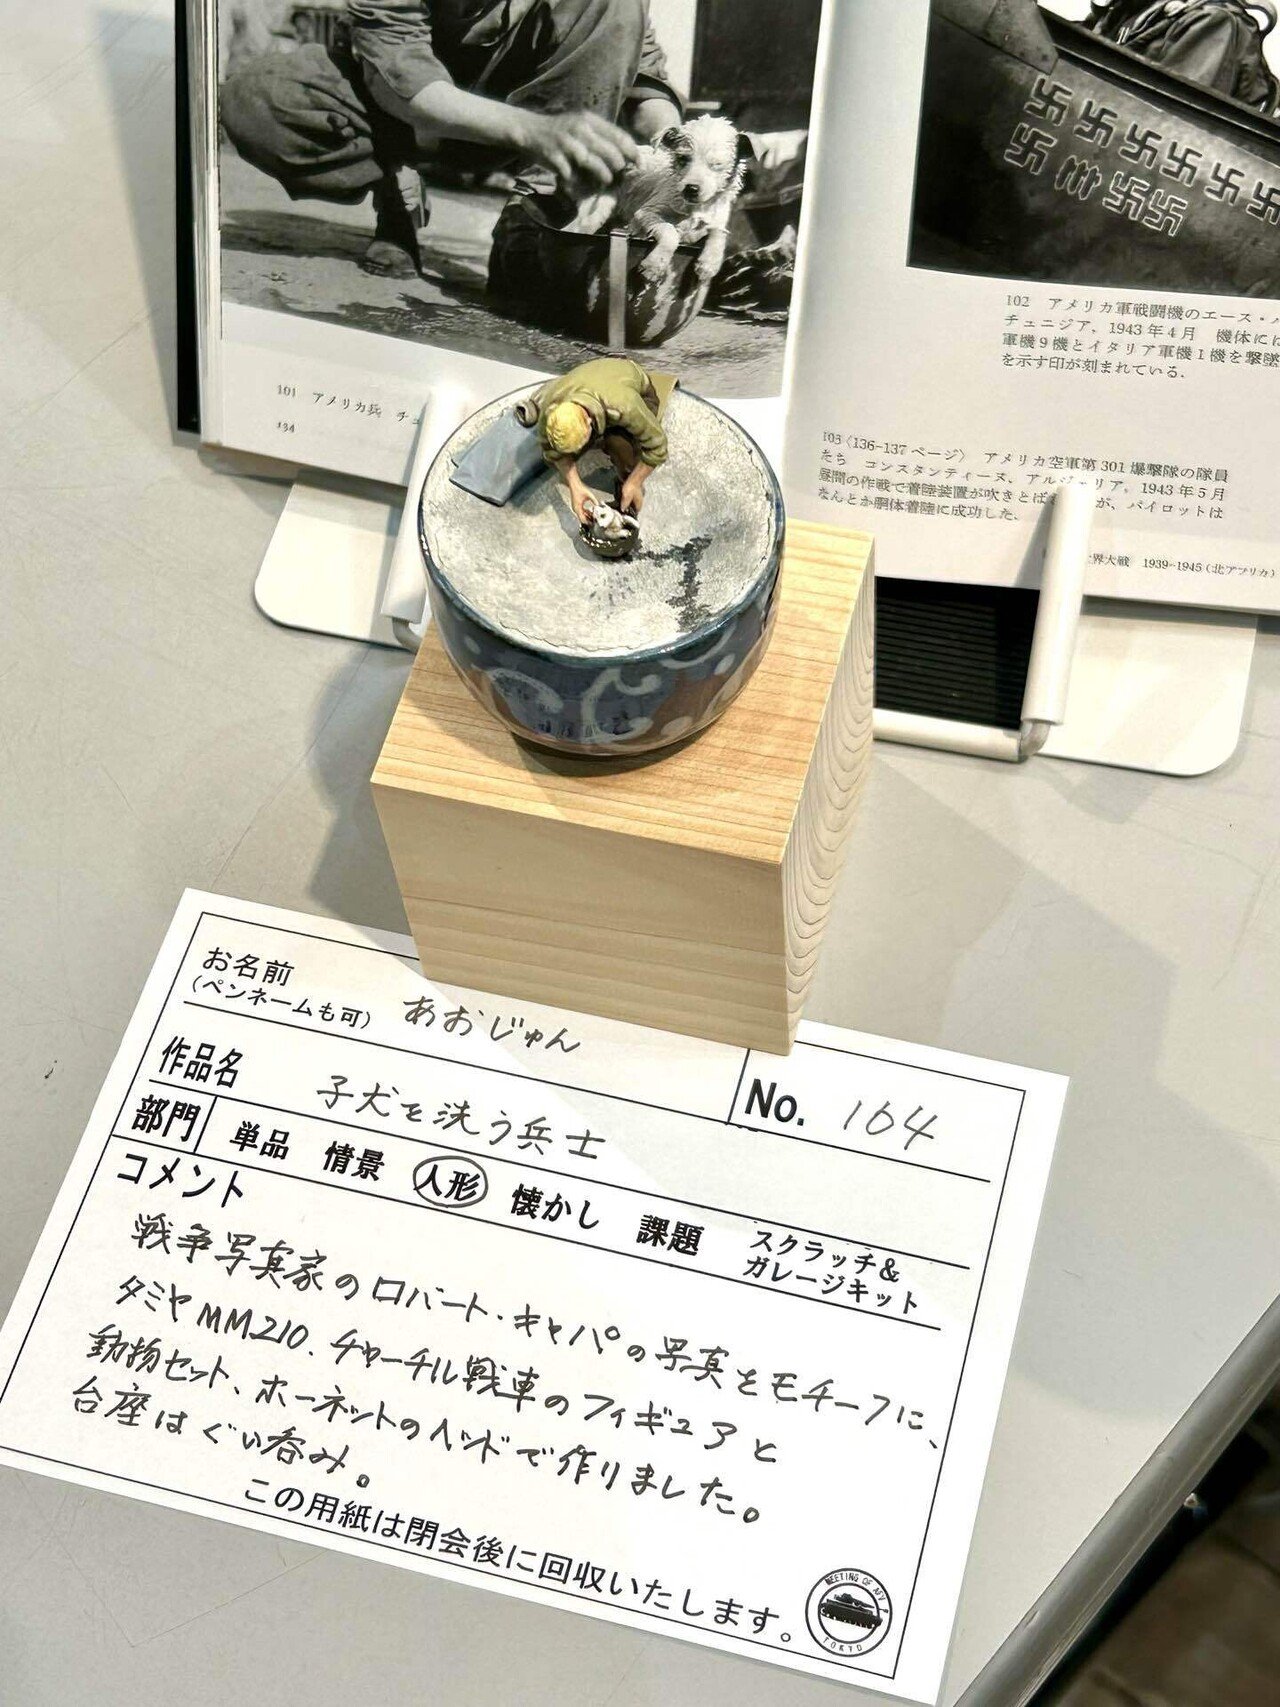 101 アメリカ兵 チュ
134
102 アメリカ軍戦闘機のエース・パ
チュニジア，1943年4月 機体には
軍機9機とイタリア軍機1機を撃墜
を示す印が刻まれている．
103〈136-137ページ〉 アメリカ空軍第301爆撃隊の隊員
たち コンスタンティーヌ，アルジェリア，1943年5月
昼間の作戦で着陸装置が吹きとば が，パイロットは
なんとか胴体着陸に成功した．
界大戦 1939-1945（北アフリカ）
お名前
（ペンネームも可） あおじゅん
作品名 子犬を洗う兵士
No. 164
部門 単品 情景 人形 懐かし 課題 スクラッチ&
ガレージキット
コメント
戦争写真家のロバート・キャパの写真をモチーフに、
タミヤMM210.チャーチル戦車のフィギュアと
動物セット、ホーネットのヘッドで作りました。
台座はぐい呑み。
この用紙は閉会後に回収いたします。
MEETING OF AFV
TOKYO